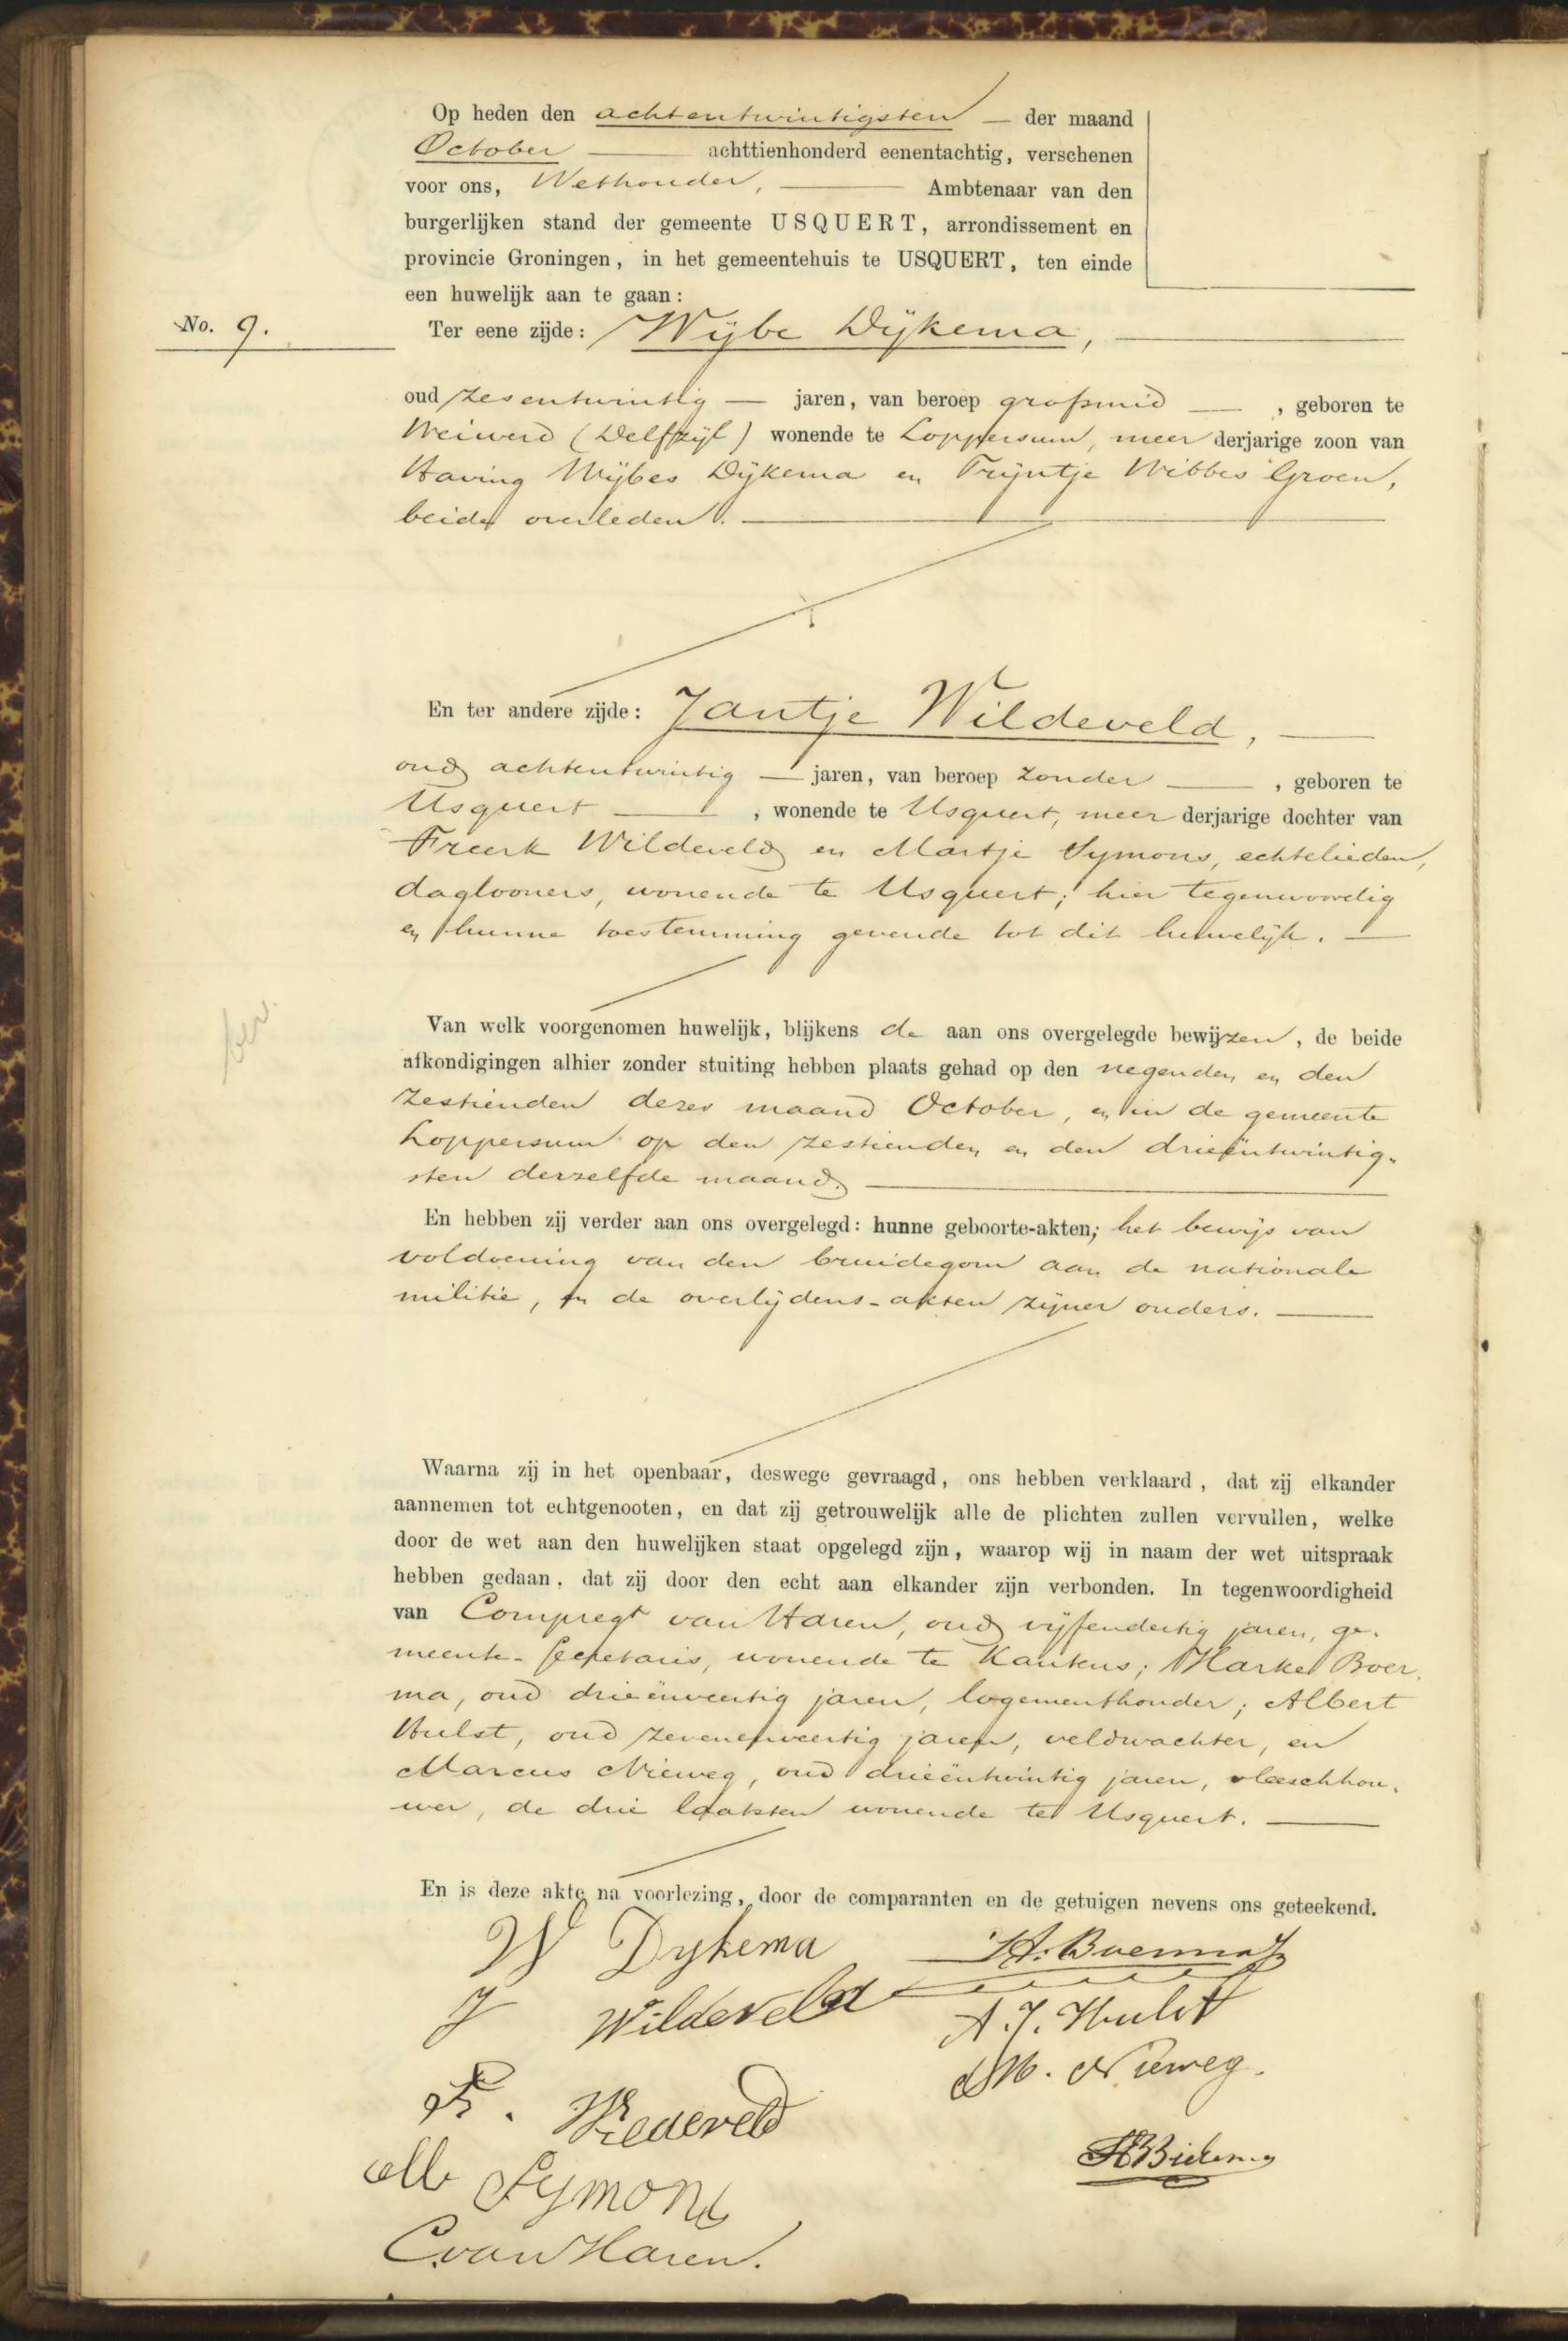 Op heden den achtentwintigsten — der maand
October — achttienhonderd eenentachtig, verschenen
voor ons, Wethouder, — Ambtenaar van den
burgerlijken stand der gemeente USQUERT, arrondissement en
provincie Groningen, in het gemeentehuis te USQUERT, ten einde
een huwelijk aan te gaan:
No. 9.
Ter eene zijde: Wijbe Dijkema, —
oud zesentwintig — jaren, van beroep grofsmid —, geboren te
Weiwerd (Delfzijl) wonende te Loppersum, meerderjarige zoon van
Having Wijbes Dijkema en Trijntje Wibbes Groen,
beide overleden. —
En ter andere zijde: Jantje Wildeveld, —
oud achtentwintig — jaren, van beroep zonder —, geboren te
Usquert —, wonende te Usquert, meerderjarige dochter van
Freerk Wildeveld en Martje Symons, echtelieden,
daglooners, wonende te Usquert; hier tegenwoordig
en hunne toestemming gevende tot dit huwelijk. —
Van welk voorgenomen huwelijk, blijkens de aan ons overgelegde bewijzen, de beide
afkondigingen alhier zonder stuiting hebben plaats gehad op den negenden en den
zestienden dezer maand October, en in de gemeente
Loppersum op den zestienden en den drieëntwintig-
sten derzelfde maand. —
En hebben zij verder aan ons overgelegd: hunne geboorte-akten; het bewijs van
voldoening van den bruidegom aan de nationale
militie, en de overlijdens-akten zijner ouders. —
Waarna zij in het openbaar, deswege gevraagd, ons hebben verklaard, dat zij elkander
aannemen tot echtgenooten, en dat zij getrouwelijk alle de plichten zullen vervullen, welke
door de wet aan den huwelijken staat opgelegd zijn, waarop wij in naam der wet uitspraak
hebben gedaan, dat zij door den echt aan elkander zijn verbonden. In tegenwoordigheid
van Compregt van Haren, oud vijfendertig jaren, ge-
meente-secretaris, wonende te Kantens; Harke Boer-
ma, oud drieënveertig jaren, logementhouder; Albert
Hulst, oud zevenenveertig jaren, veldwachter, en
Marcus Nieweg, oud drieëntwintig jaren, vleeschhou-
wer, de drie laatsten wonende te Usquert. —
En is deze akte na voorlezing, door de comparanten en de getuigen nevens ons geteekend.
W Dykema
H. Boerma
J Wildeveld
A. J. Hulst
F. Wildeveld
M. Nieweg.
M Symons
C. van Haren.